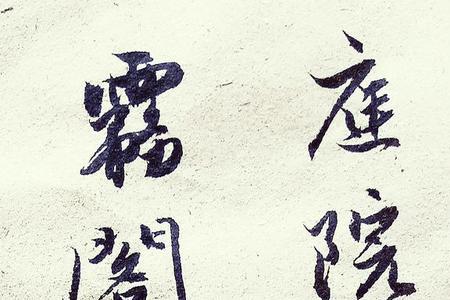 庭院
霧閣